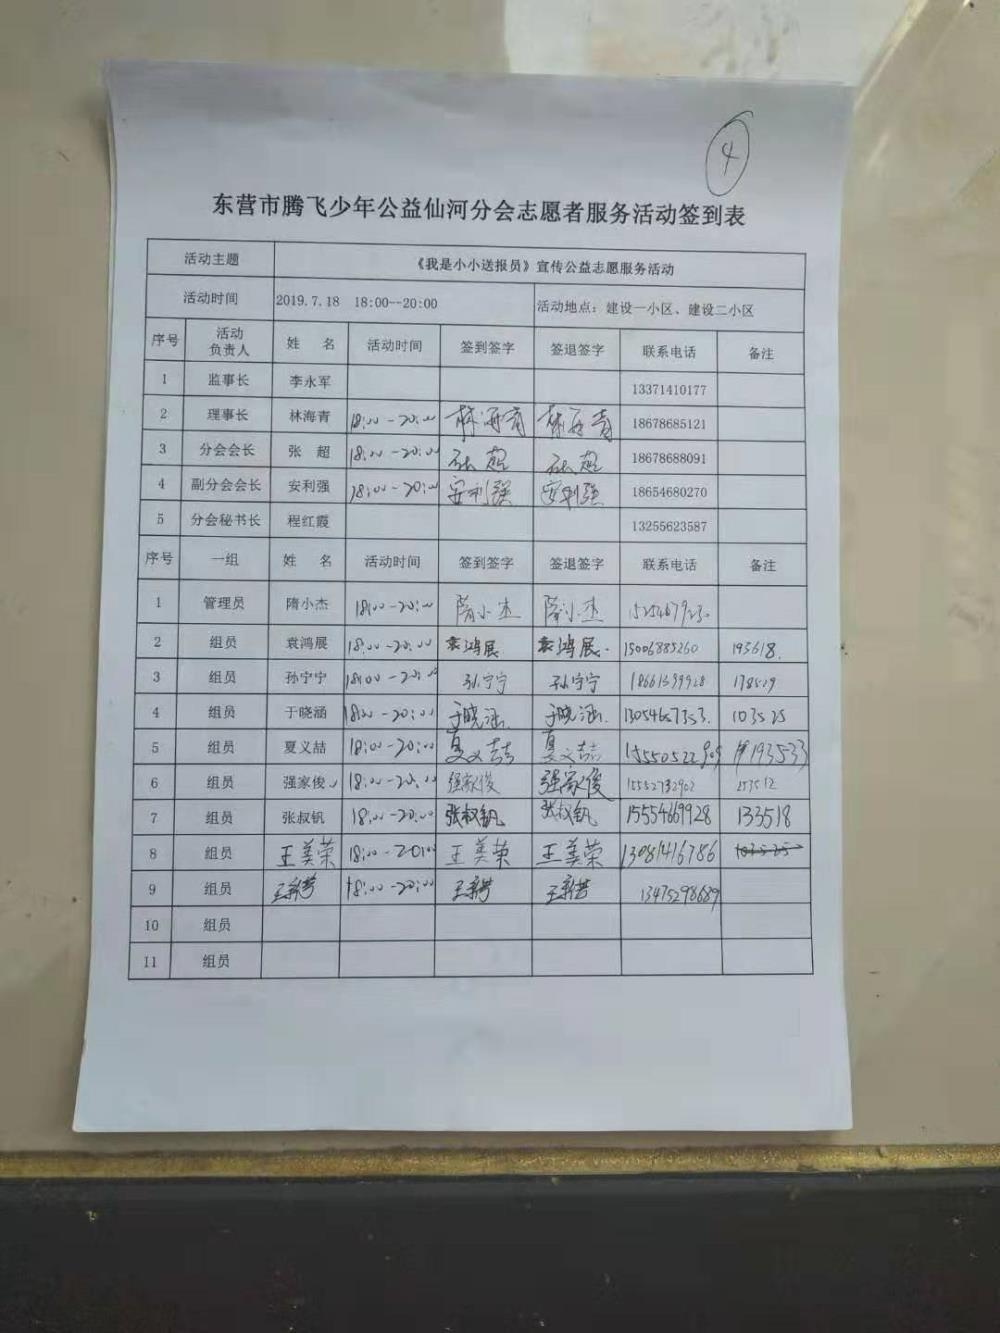 4
东营市腾飞少年公益仙河分会志愿者服务活动签到表
活动主题 《我是小小送报员》宣传公益志愿服务活动
活动时间 2019.7.18 18:00--20:00 活动地点：建设一小区、建设二小区
序号 活动负责人 姓 名 活动时间 签到签字 签退签字 联系电话 备注
1 监事长 李永军 13371410177
2 理事长 林海青 18:00-20:00 林海青 林海青 18678685121
3 分会会长 张 超 18:00-20:00 张超 张超 18678688091
4 副分会会长 安利强 18:00-20:00 安利强 安利强 18654680270
5 分会秘书长 程红霞 13255623587
序号 一组 姓 名 活动时间 签到签字 签退签字 联系电话 备注
1 管理员 隋小杰 18:00-20:00 隋小杰 隋小杰
2 组员 袁鸿展 18:00-20:00 袁鸿展 袁鸿展. 15006885260 193618.
3 组员 孙宁宁 18:00-20:00 孙宁宁 孙宁宁 178529
4 组员 于晓涵 18:00-20:00 于晓涵. 于晓涵. 13054657353. 103525
5 组员 夏义喆 18:00-20:00 夏义喆 夏义喆 15550522909 193533
6 组员 强家俊 18:00-20:00 强家俊 强家俊 15552732902 253512
7 组员 张叔钒 18:00-20:00 张叔钒 张叔钒 15554669928 133518
8 组员 王美荣 18:00-20:00 王美荣 王美荣 13081416786 103525
9 组员 18:00-20:00 13475298689
10 组员
11 组员